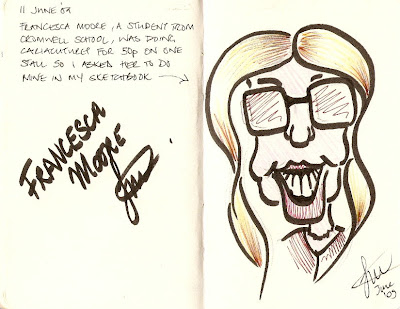 11 JUNE '09
FRANCESCA MOORE, A STUDENT FROM
CROMWELL SCHOOL, WAS DOING
CARIACUTURES FOR 50p ON ONE
STALL SO I ASKED HER TO DO
MINE IN MY SKETCHBOOK
FRANCESCA
MOORE
June
'09